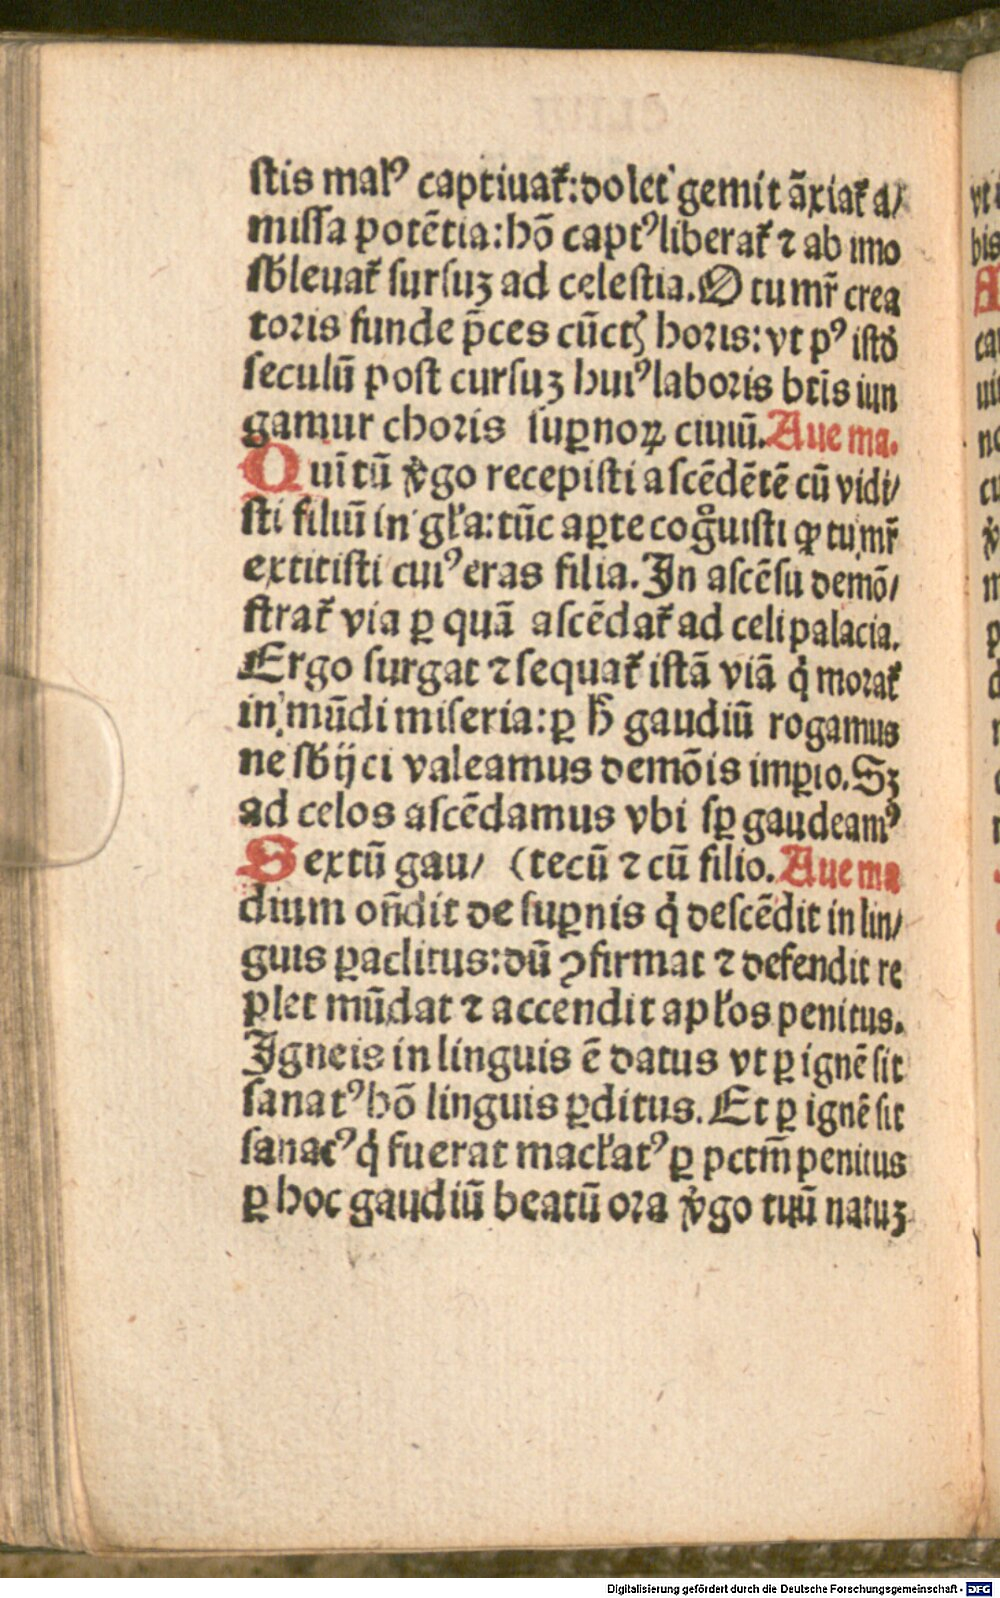 ſtis malꝰ captiuat᷑: dolet gemit ãxiat᷑ a/
miſſa potẽtia: hõ captꝰ liberat᷑ ⁊ ab imo
ſb̾leuat᷑ ſurſuꝫ ad celeſtia. O tu mr̃ crea
toꝛis funde p̃ces cũctꝭ hoꝛis: vt pꝰ iſtd̾
ſeculũ poſt curſuꝫ huiꝰ laboꝛis btĩs iun
gamur choꝛis ſuꝑnoꝝ ciuiũ. Aue ma.
Quĩtũ v̾go recepiſti aſcẽdẽtẽ cũ vidi/
ſti filiũ in gl̃a: tũc aꝑte cog̊uiſti ꝙ tu mr̃
extitiſti cuiꝰ eras filia. In aſcẽſu demõ/
ſtrat᷑ via ꝑ quã aſcẽdat᷑ ad celi palacia.
Ergo ſurgat ⁊ ſequat᷑ iſtã viã q̇ moꝛat᷑
in mũdi miſeria: ꝑ h̃ gaudiũ rogamus
ne ſb̾ijci valeamus demõis imꝑio. Sꝫ
ad celos aſcẽdamus vbi ſꝑ gaudeamꝰ
Sextũ gau/ (tecũ ⁊ cũ filio. Aue ma
dium oñdit de ſuꝑnis q̇ deſcẽdit in lin/
guis ꝑaclitus: dũ ꝯfirmat ⁊ defendit re
plet mũdat ⁊ accendit apl̃os penitus.
Igneis in linguis ẽ datus vt ꝑ ignẽ ſit
ſanatꝰ hõ linguis ꝑditus. Et ꝑ ignẽ ſit
ſanatꝰ q̇ fuerat macl̃atꝰ ꝑ pctm̃ penitus
ꝑ hoc gaudiũ beatũ oꝛa v̾go tuũ natuꝫ
Digitalisierung gefördert durch die Deutsche Forschungsgemeinschaft - DFG